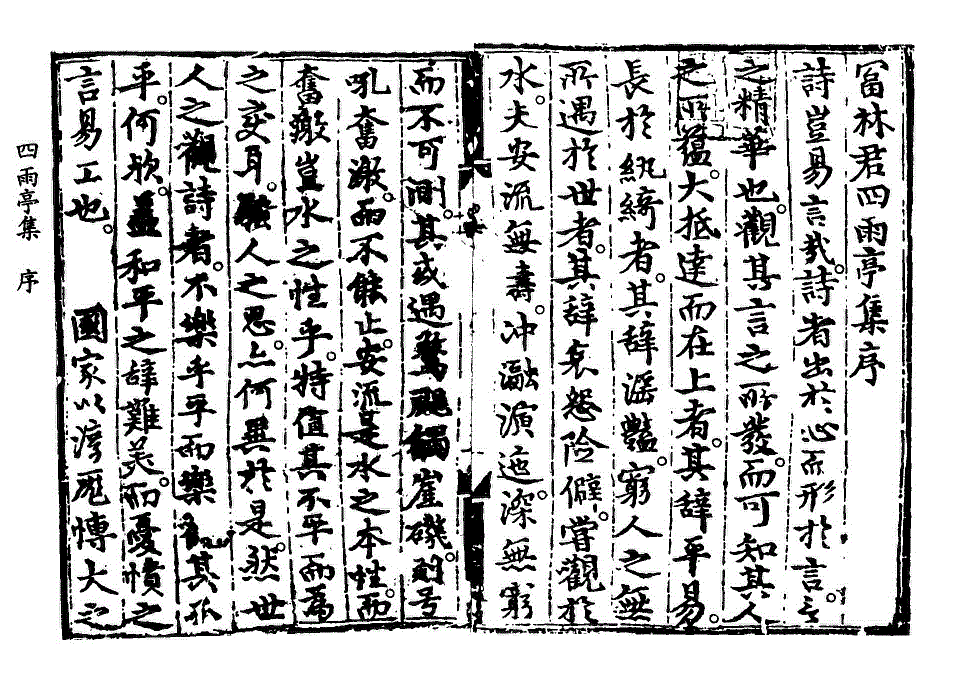 富林君四雨亭集序
詩豈易言哉詩者出於心而形於言言
之精華也觀其言之所發而可知其人
之所蘊大抵達而在上者其辞平易
長於紈綺者其辞滛豔窮人之無
所遇於世者其辞哀怨险僻嘗觀於
水夫安流無濤冲瀜演迤深無窮
而不可測其或遇驚飈觸崖磯則号
吼奮激而不能止安流是水之本性而
奮激豈水之性乎特值其不平而為
之变耳騷人之思亦何異於是然世
人之觀詩者不樂乎平而樂觀其孤
平何欤盖和平之辞難美而憂憤之
言易工也 國家以淳厖愽大之
四雨亭集 序